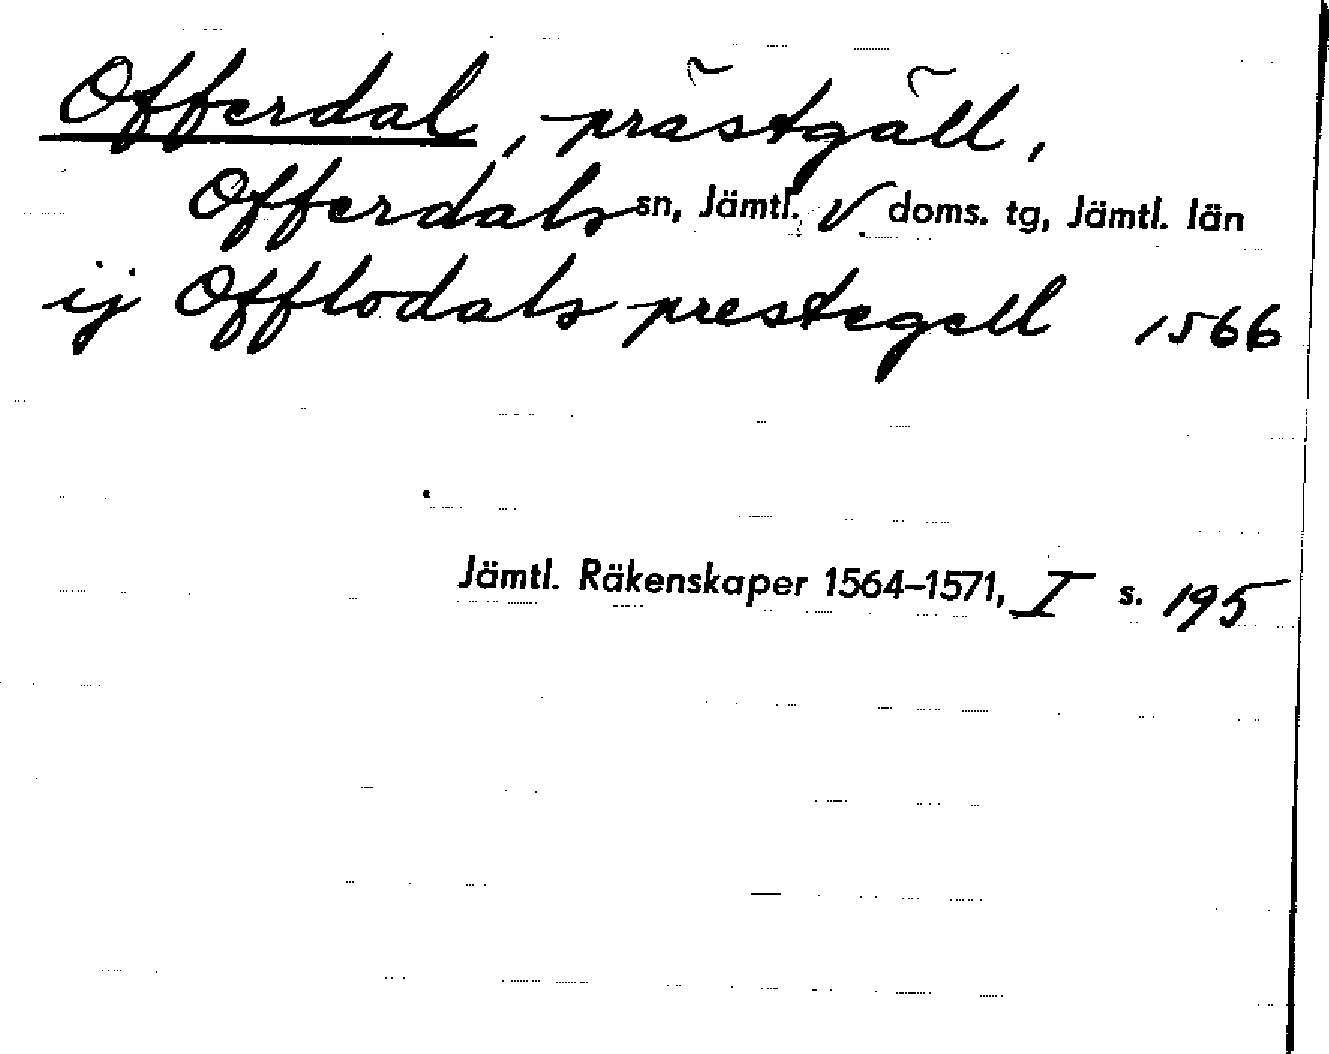 Offerdal, prästgäll,
Offerdals sn, Jämtl. V doms. tg, Jämtl. län
ij Offlodals prestegell 1566
Jämtl. Räkenskaper 1564–1571, I s. 195